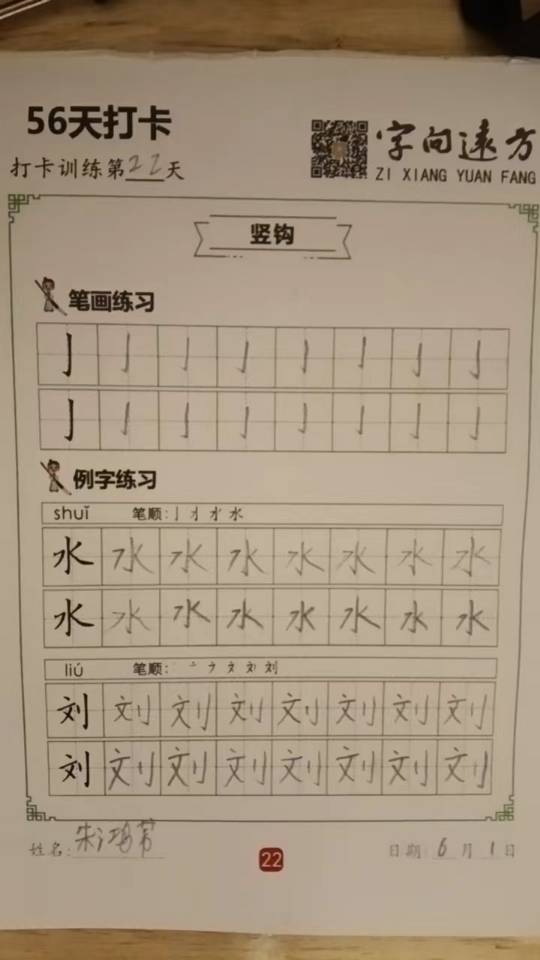 56天打卡
打卡训练第22天
字向远方
ZI XIANG YUAN FANG
竖钩
笔画练习
亅 亅 亅 亅 亅 亅 亅 亅
亅 亅 亅 亅 亅 亅 亅 亅
例字练习
shuǐ 笔顺: 亅 水
水 水 水 水 水 水 水 水
水 水 水 水 水 水 水 水
liú 笔顺: 刘
刘 刘 刘 刘 刘 刘 刘 刘
刘 刘 刘 刘 刘 刘 刘 刘
姓名: 朱
22
日期: 6月1日